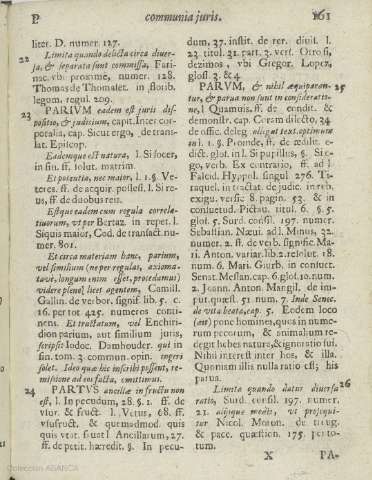 P
communia juris.
161
liter. D. numer. 127.
22 Limita quando delicta circa diver-
sa, & separata sunt commissa, Fari-
nac. vbi proxime, numer. 128.
Thomas de Thomaset. in florib.
legum. regul. 209.
23 PARIVM eadem est juris dis-
positio, & judicium, capit. Inter cor-
poralia, cap. Sicut ergo, de trans-
lat. Episcop.
Eademque est natura, l. Si socer,
in fin. ff. solut. matrim.
Et potentia, nec maior, l. 1. §. Ve-
teres. ff. de acquir. possess. l. Si re-
us, ff. de duobus reis.
Estque eadem cum regula correla-
tivorum, vt per Bertaz. in repet. l.
Siquis maior, Cod. de transact. nu-
mer. 801.
Et circa materiam hanc, parium,
vel similium (ne per regulas, axioma-
tavi, longum enim esset, procedamus)
videre plené licet agentem, Camill.
Gallin. de verbor. signif. lib. 5. c.
16. per tot 425. numeros conti-
nens. Et tractatum, vel Enchiri-
dion parium, aut similium juris,
scripsit Iodoc. Damhouder. qui in
fin. tom. 3. commun. opin. ingeri
solet. Ideo quæ hic inscribi possent, re-
misione ad eos facta, omittimus.
24 PARTVS ancillæ in fructu non
est, l. In pecudum, 28. §. 1. ff. de
vsur. & fruct. l. Vetus, 68. ff.
vsufruct. & quemadmod. quis
quis vtat. fruat l. Ancillarum, 27.
ff. de petit. hæredit. §. In pecu-
dum, 37. instit. de rer. divis. l.
23. titul. 31. part. 3. vers. Otrosi,
dezimos, vbi Gregor. Lopez,
gloss. 3. & 4.
PARVM, & nihil æquiparan- 25
tur, & parva non sunt in consideratio-
ne, l. Quamvis, ff. de condit. &
demonstr. cap. Coram dilecto, 34
de offic. deleg.
in l. 1. §. Proinde, ff. de ædilit. e-
dict. glos. in l. Si pupillus, §. Si e-
go, verb. Ex contrario, ff. ad l.
Falcid. Hyppol. singul. 276. Ti-
raquel. in tractat. de judic. in reb.
exigu. versic. 8. pagin. 53. & in
consuetud. Pictav. titul. 6. §. 5.
glos. 5. Surd. consil. 197. numer.
Sebastian. Nævi. ad l. Minus, 32.
numer. 2. ff. de verb. signific. Ma-
ri. Anton. variar. lib. 2. resolut. 18.
num. 6. Mari. Giurb. in consuet.
Senat. Messan. cap. 6. glos. 10. num.
2. Joann. Anton. Mangil. de im-
put. quæst. 51. num. 7. Inde Senec.
de vita beata, cap. 5. Eodem loco
(ait) pone homines, quos in nume-
rum pecorum, & animalium re-
degit hebes natura, & ignoratio sui.
Nihil interest inter hos, & illa.
Quoniam illis nulla ratio est; his
parva.
Limita quando datur diversa 26
ratio, Surd. consil. 197. numer.
21. aliisque modis, vt prosequi-
tur Nicol. Moron. de treug.
& pace. quæstion. 175. per to-
tum.
X
PA-
Colección ABANCA